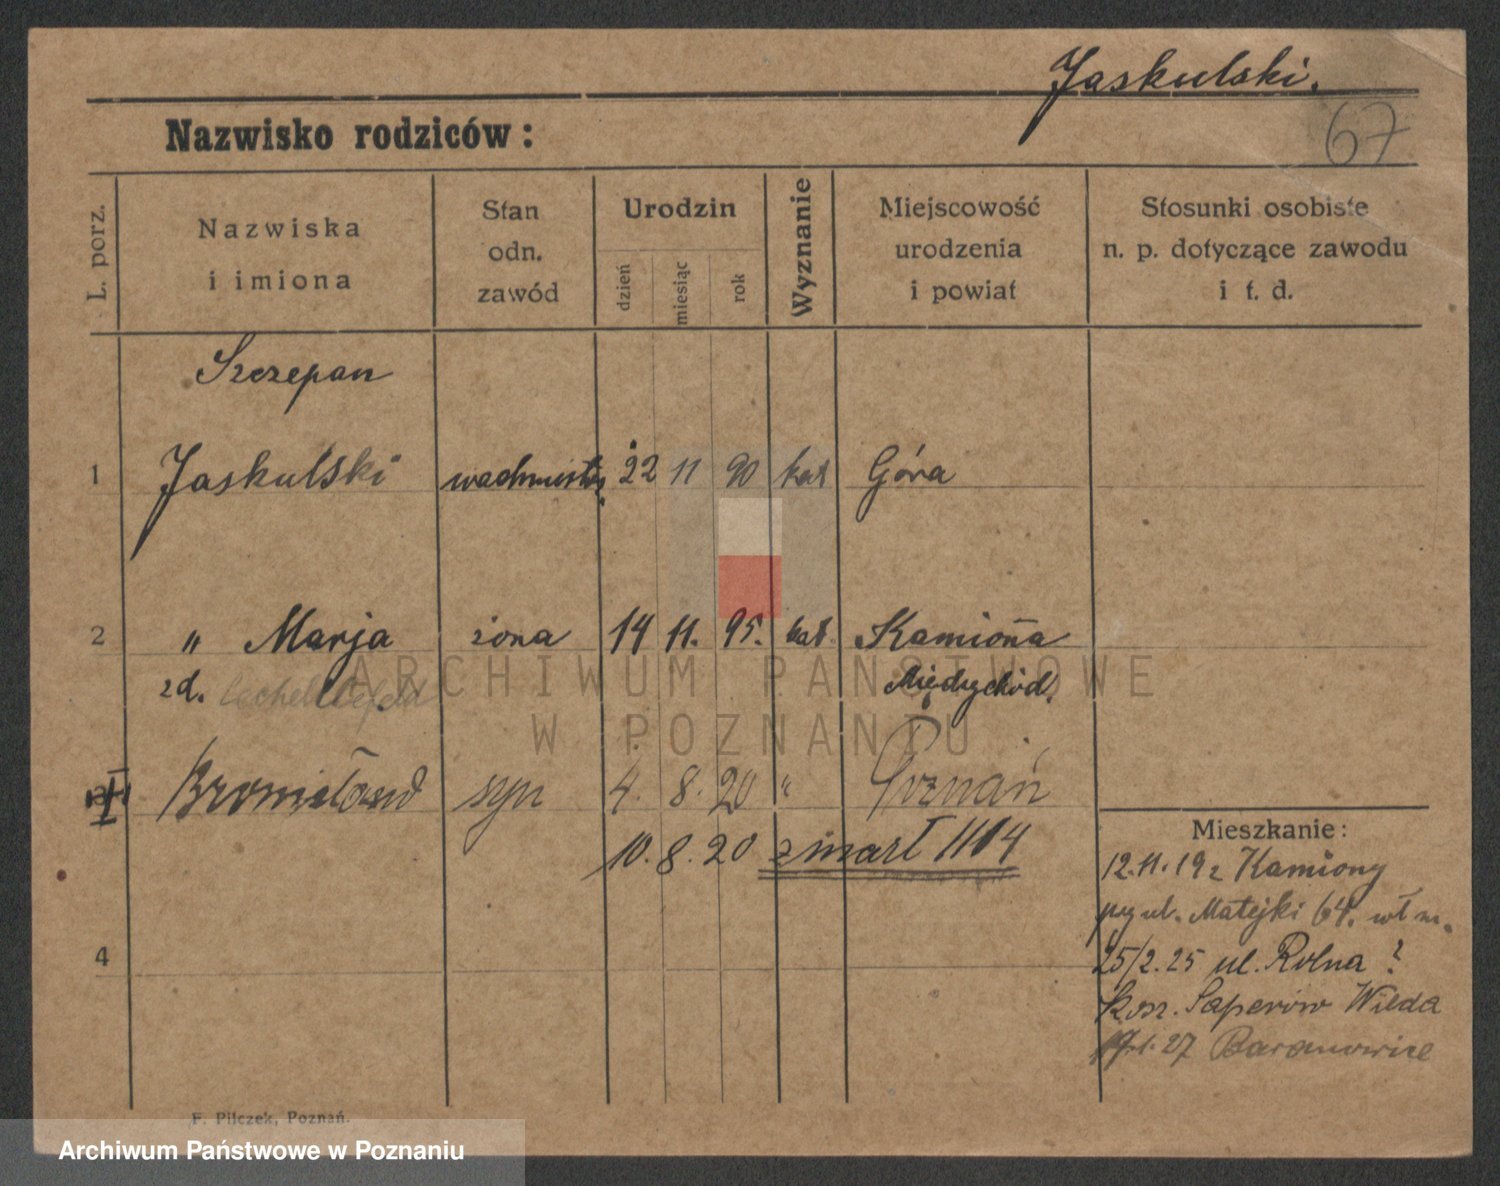 Jaskulski.
67
Nazwisko rodziców:
L. porz.
Nazwiska
i imiona
Stan
odn.
zawód
Urodzin
dzień
miesiąc
rok
Wyznanie
Miejscowość
urodzenia
i powiat
Stosunki osobiste
n. p. dotyczące zawodu
i t. d.
Szczepan
1 Jaskulski wachmistrz 22 11 90 kat Góra
2 " Marja żona 14 11. 95. kat. Kamionna
zd. Międzychód.
Bronisław syn 4. 8. 20 " Poznań
10. 8. 20 zmarł 1104
4
Mieszkanie:
12.11.19 z Kamiony
ul. Matejki 64. wł m.
25/2.25 ul. Rolna ?
kosz. Saperów Wilda
1.27 Baranowice
ARCHIWUM PAŃSTWOWE
W POZNANIU
F. Pilczek, Poznań.
Archiwum Państwowe w Poznaniu